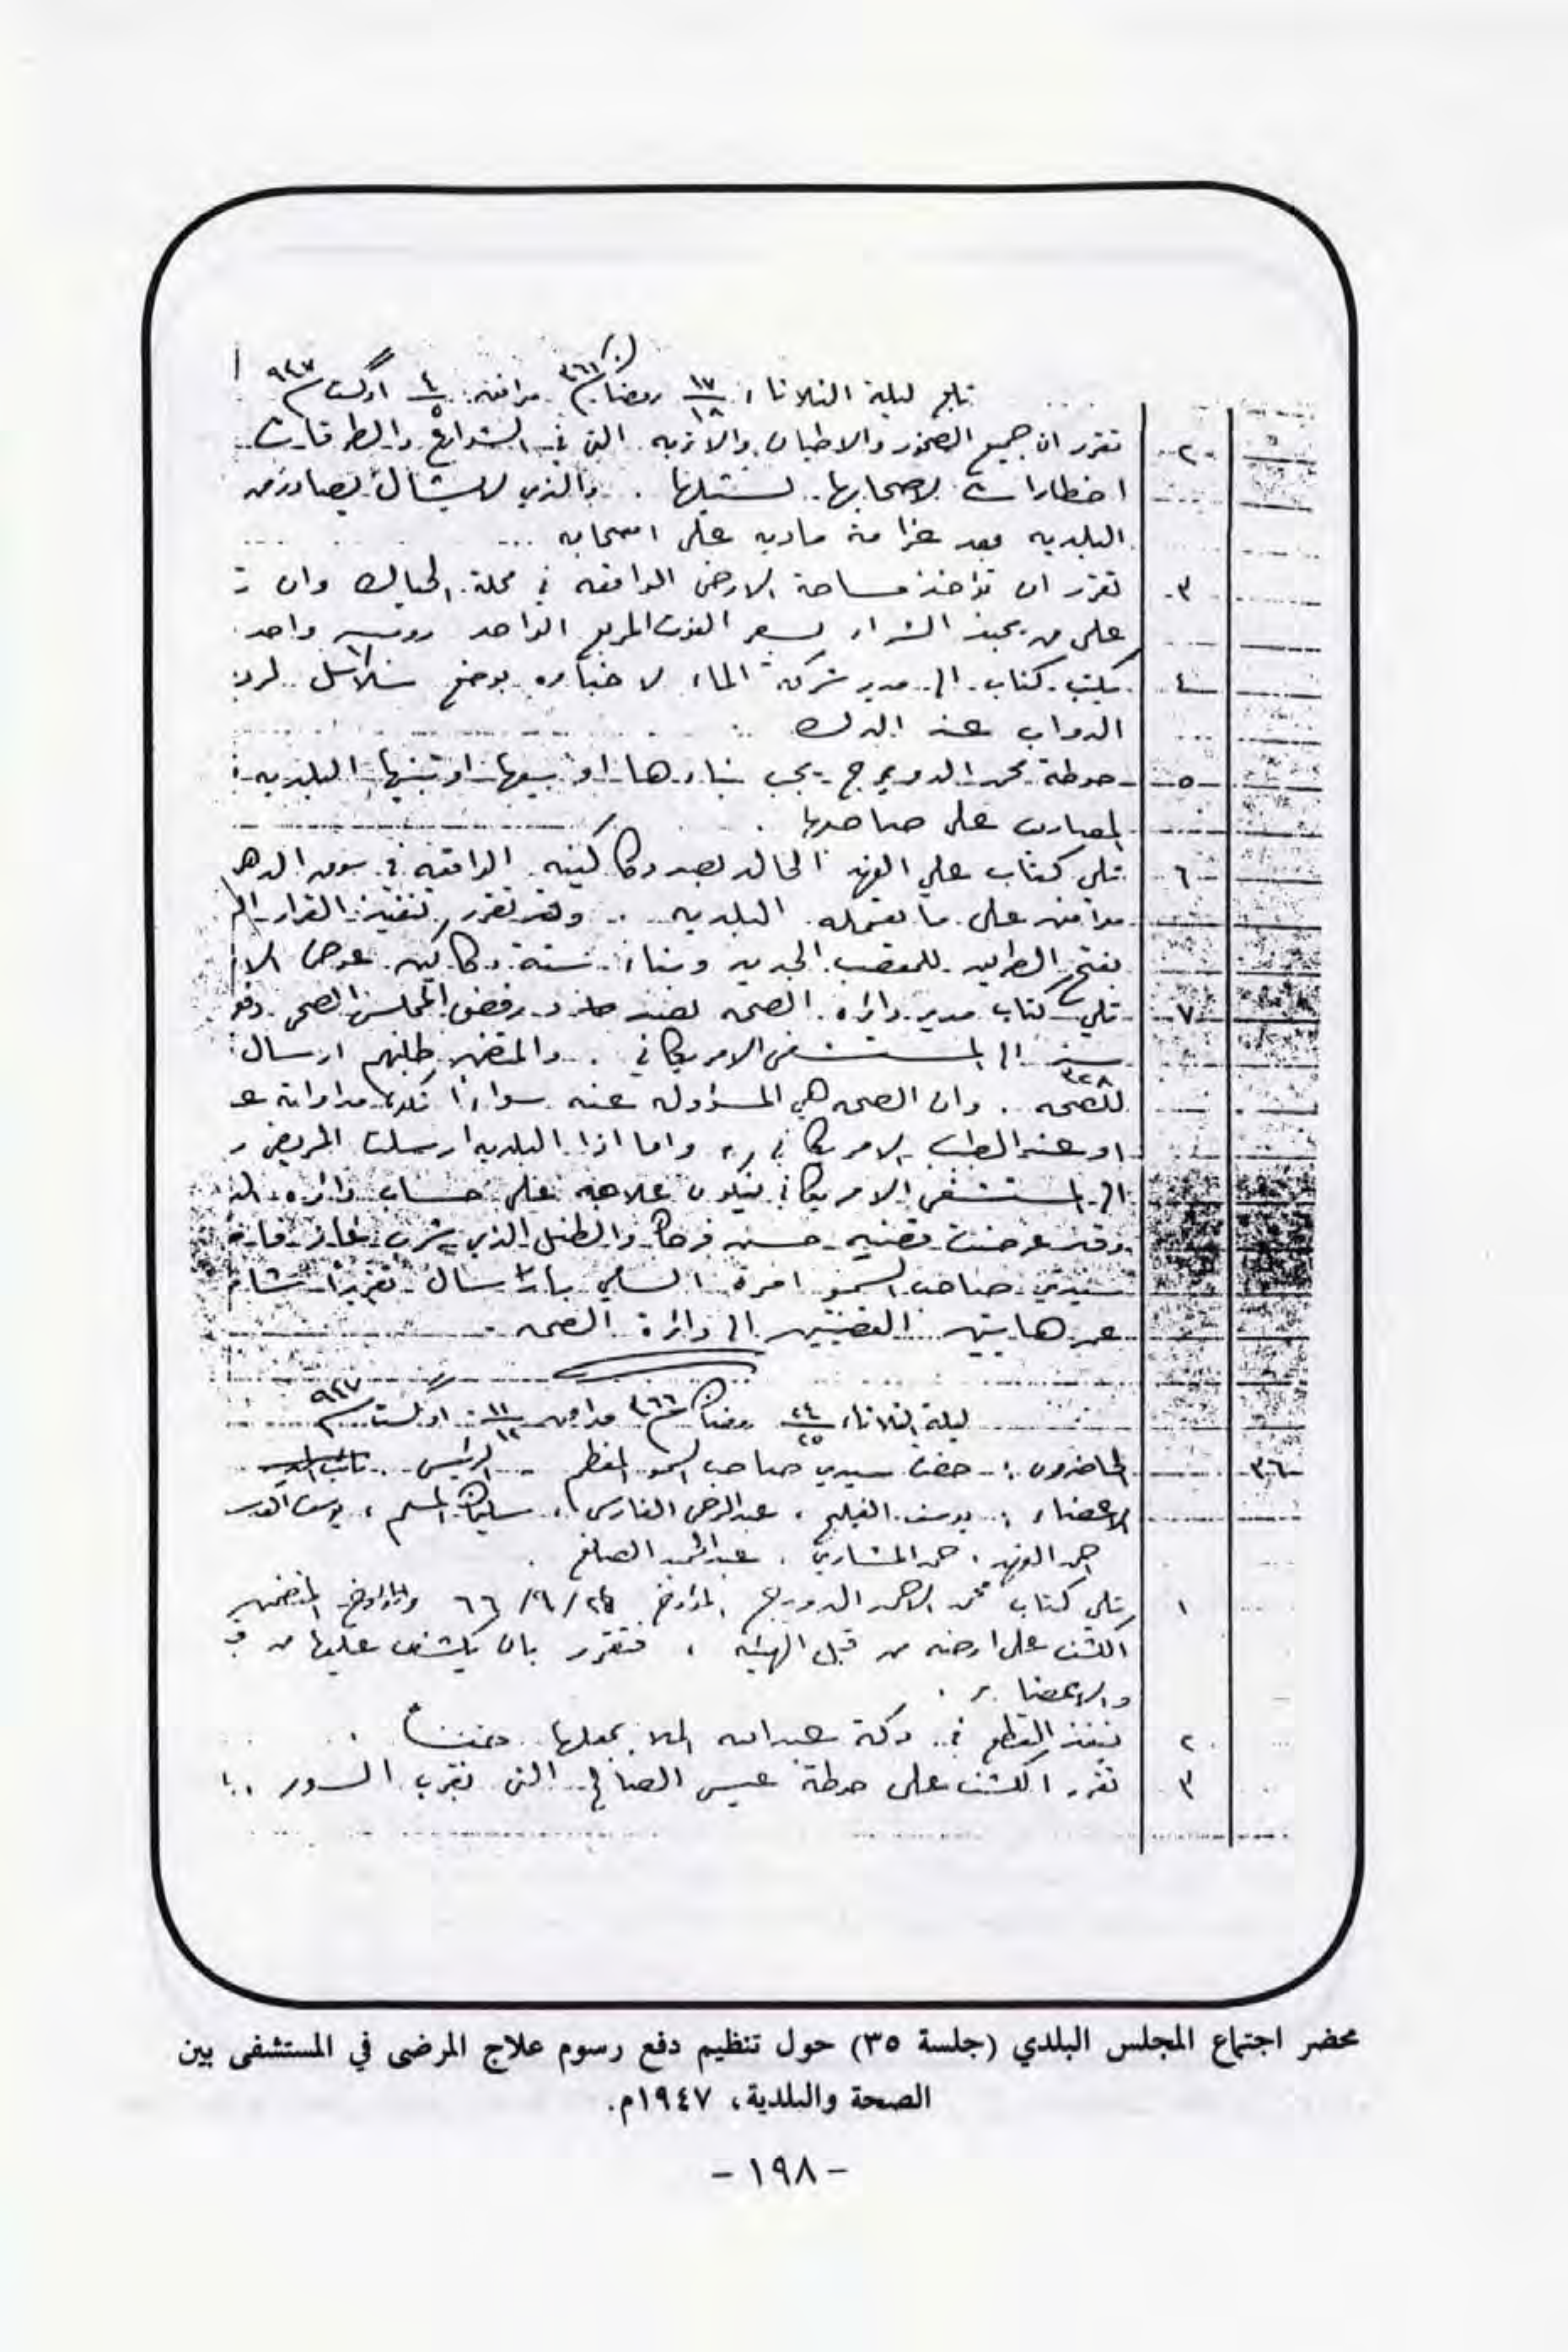 تابع ليلة الثلاثاء ١٧/١٨ رمضان ٣٦٦ موافق ٤/٥ اوگست ٩٤٧
٢ تقرر ان جميع الصخور والاطيان والاتربه التي في الشوارع والطرقات
اخطارات لاصحابها لتشيلها . والذي لا يشال يصادر من
البلديه بعد غرامة ماديه على اصحابه
٣ تقرر ان تؤخذ مساحة الارض الواقعه في محلة وان
على من يحبذ الشراء بسعر الفوت المربع الواحد روبيه واحد
٤ يكتب كتاب الى مدير شركة الماء لاخباره بوضع سلاسل
الدواب عند البرك
٥ حوطة محمد الدويرج يجب بناءها او بيعها او تبنيها البلديه
المصاريف على صاحبها
٦ تلي كتاب علي الفهد الخالد بصدد دكاكينه الواقعه في سوق
موافق على ما تعمله البلديه . وقد تقرر تنفيذ القرار
بفتح الطريق للمقصب الجديد وبناء ستة دكاكين عوض
٧ تلي كتاب مدير دائرة الصحه رفض المجلس الصحي دفع
الى المستشفى الامريكاني . والمتضمن طلبهم ارسال
للصحه . وان الصحه هي المسؤوله عنه سواءً مداواته
او عند الطبيب الامريكاني ، واما اذا البلديه ارسلت المريض
الى المستشفى الامريكاني فيكون علاجه على حساب دائرة
وقد عرضت قضية حسين فرحان والطفل الذي شرب غاز
سيدي صاحب السمو امره السامي بارسال تقريراً
عن هاتين القضيتين الى دائرة الصحه .
ليلة الثلاثاء ٢٤/٢٥ رمضان ٣٦٦ موافق ١١/١٢ اوگست ٩٤٧
٣٦ الحاضرون :- حضرة سيدي صاحب السمو المعظم - الرئيس .
الاعضاء : يوسف الفليج ، عبدالرحمن الفارس ، سليمان المسلم ، يوسف
احمد الفهد ، حمد المشاري ، عبدالحميد الصانع .
١ تلي كتاب محمد الاحمد الدويرج المؤرخ ٢٤/٩/٦٦ المتضمن
الكشف على ارضه من قبل الهيئه ، فتقرر بان يكشف عليها من
والاعضاء .
٢ ينفذ القطع في دكة عبدالله الملا بجعلها
٣ تقرر الكشف على حوطة عيسى الصالح التي بقرب السور
محضر اجتماع المجلس البلدي (جلسة ٣٥) حول تنظيم دفع رسوم علاج المرضى في المستشفى بين
الصحة والبلدية، ١٩٤٧م.
- ١٩٨ -